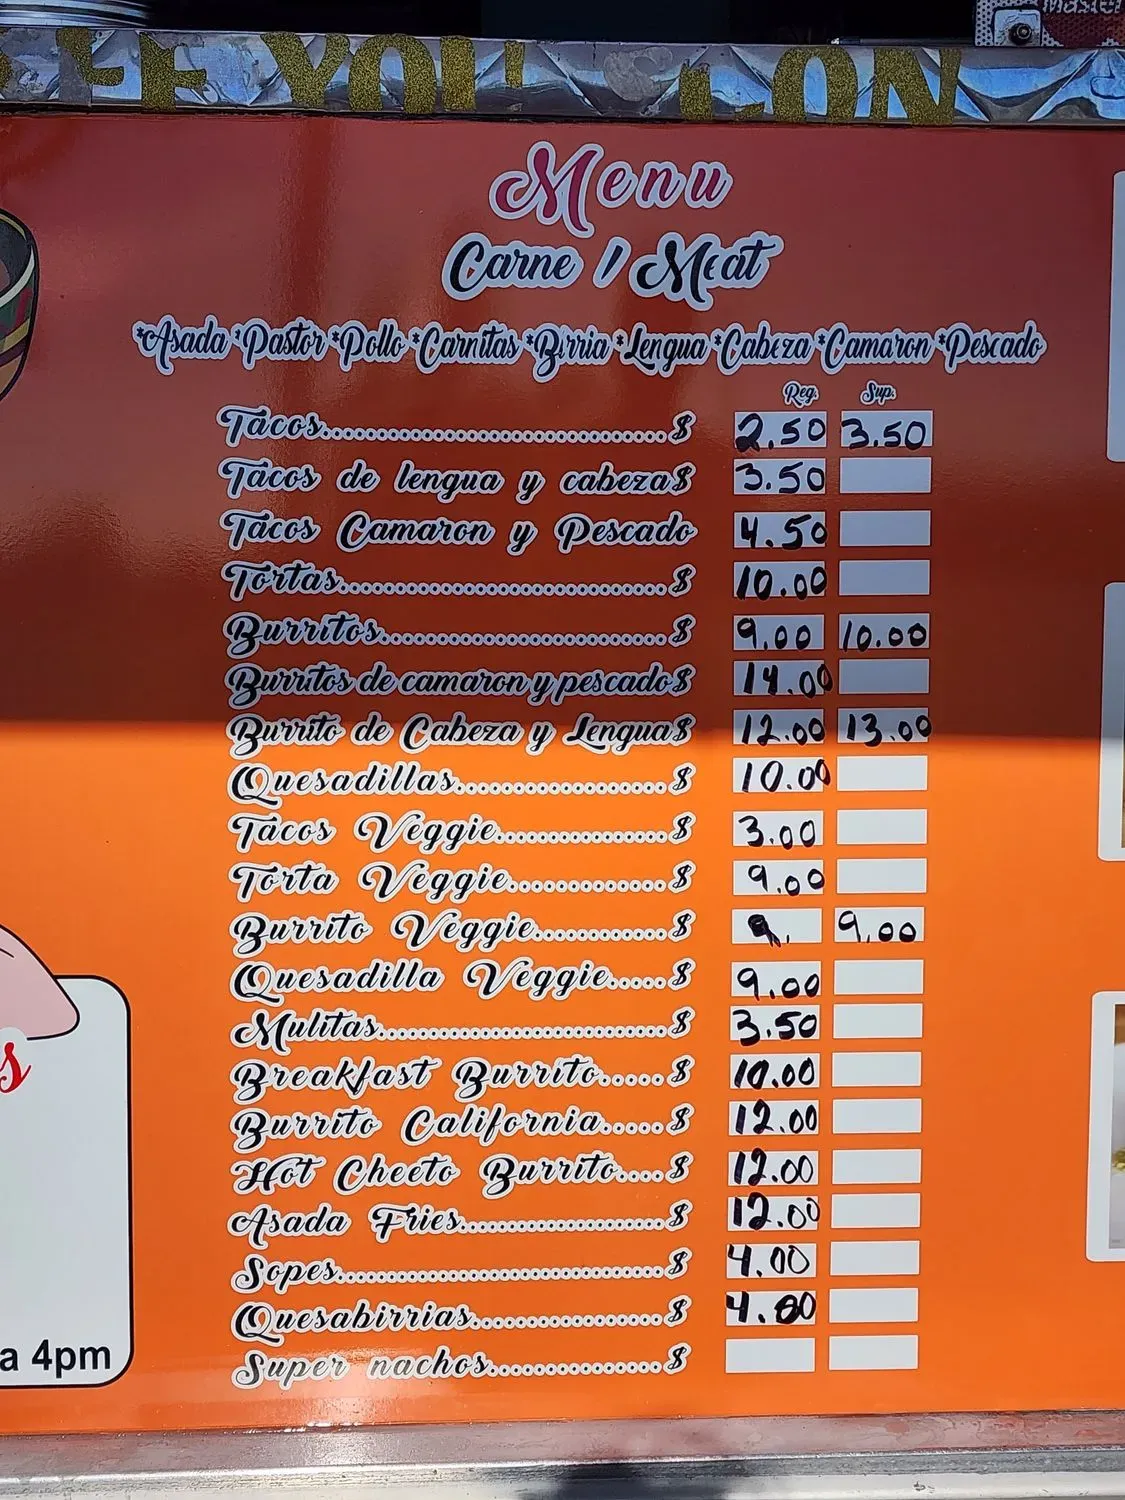 EE YOU CON
Menu
Carne / Meat
*Asada *Pastor *Pollo *Carnitas *Birria *Lengua *Cabeza *Camaron *Pescado
Reg. Sup.
Tacos........................................$ 2.50 3.50
Tacos de lengua y cabeza$ 3.50
Tacos Camaron y Pescado 4.50
Tortas......................................$ 10.00
Burritos..................................$ 9.00 10.00
Burritos de camaron y pescado$ 14.00
Burrito de Cabeza y Lengua$ 12.00 13.00
Quesadillas..........................$ 10.00
Tacos Veggie...................$ 3.00
Torta Veggie..................$ 9.00
Burrito Veggie...............$ 9.00
Quesadilla Veggie......$ 9.00
Mulitas..................................$ 3.50
Breakfast Burrito......$ 10.00
Burrito California......$ 12.00
Hot Cheeto Burrito....$ 12.00
Asada Fries.........................$ 12.00
Sopes.......................................$ 4.00
Quesabirrias.......................$ 4.00
Super nachos.....................$
s
a 4pm